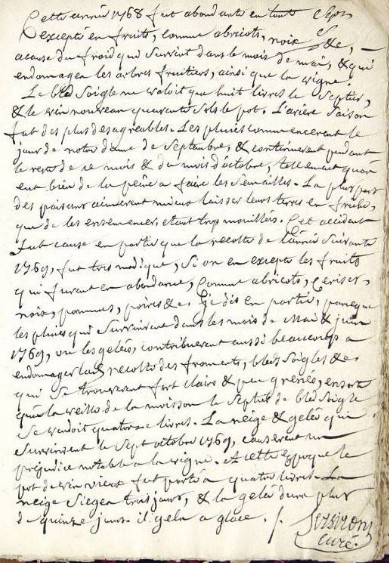 Cette année 1768 fut abondante en tout
excepté en fruits, comme abricots, noix &c,
a cause du froid qui survint dans le mois de mai, & qui
endomagea les arbres fruitiers, ainsi que la vigne.
Le bled seigle ne valoit que huit livres le septier,
& le vin nouveau quarante sols le pot. L'arière saison
fut des plus desagréables. Les pluies commencerent le
jour de notre dame de Septembre, & continuerent pendant
le reste de ce mois & du mois d'octobre, tellement qu'on
eut bien de la peine a faire les semailles. La plus part
des paisans aimerent mieux laisser leurs terres en friche,
que de les ensemencer, etant trop mouillées. Cet accident
fut cause en partie que la recolte de l'année suivante
1769, fut tres modique, si on en excepte les fruits
qui furent en abondance, comme abricots, cerises,
noix, pommes, poires &c. Je dis en partie, parceque
les pluies qui survinrent dans les mois de Mai & juin
1769, ou les gelées, contribuerent aussi beaucoup a
endomager la recolte des froments, bleds seigles &c
qui se trouverent fort clairs & peu grenés, ensorte
que la veille de la moisson le septier de bled seigle
se vendoit quatorze livres. La neige & gelée qui
survinrent le sept octobre 1769, causerent un
préjudice notable a la vigne. A cette époque le
pot de vin vieux fut porté a quatre livres. La
neige siegea trois jours, & la gelée dura plus
de quinze jours. il gela a glace. /.
curé.